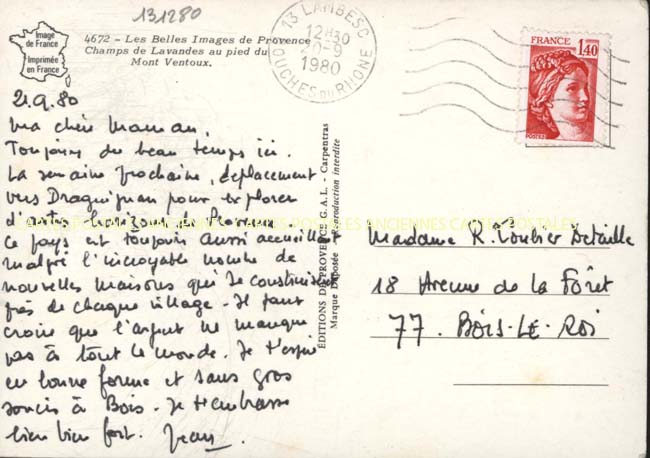 131280
Image
de France
Imprimée
en France
4672 - Les Belles Images de Provence
Champs de Lavandes au pied du
Mont Ventoux.
13 LAMBESC
12H30
20-9
1980
BOUCHES DU RHONE
FRANCE
1,40
POSTES
21.9.80
Ma chère Maman,
Toujours du beau temps ici.
La semaine prochaine, déplacement
vers Draguignan pour explorer
d'autres horizons de Provence.
Ce pays est toujours aussi accueillant
malgré l'incroyable nombre de
nouvelles maisons qui se construisent
près de chaque village. Il faut
croire que l'argent ne manque
pas à tout le monde. Je t'espère
en bonne forme et sans gros
soucis à Bois. Je t'embrasse
bien bien fort. Jean.
ÉDITIONS DE PROVENCE G.A.L. - Carpentras
Marque Déposée - Reproduction interdite
Madame R.
18 Avenue de la Forêt
77. BOIS-LE-ROI
CARTES POSTALES ANCIENNES CARTES POSTALES ANCIENNES CARTES POSTALES